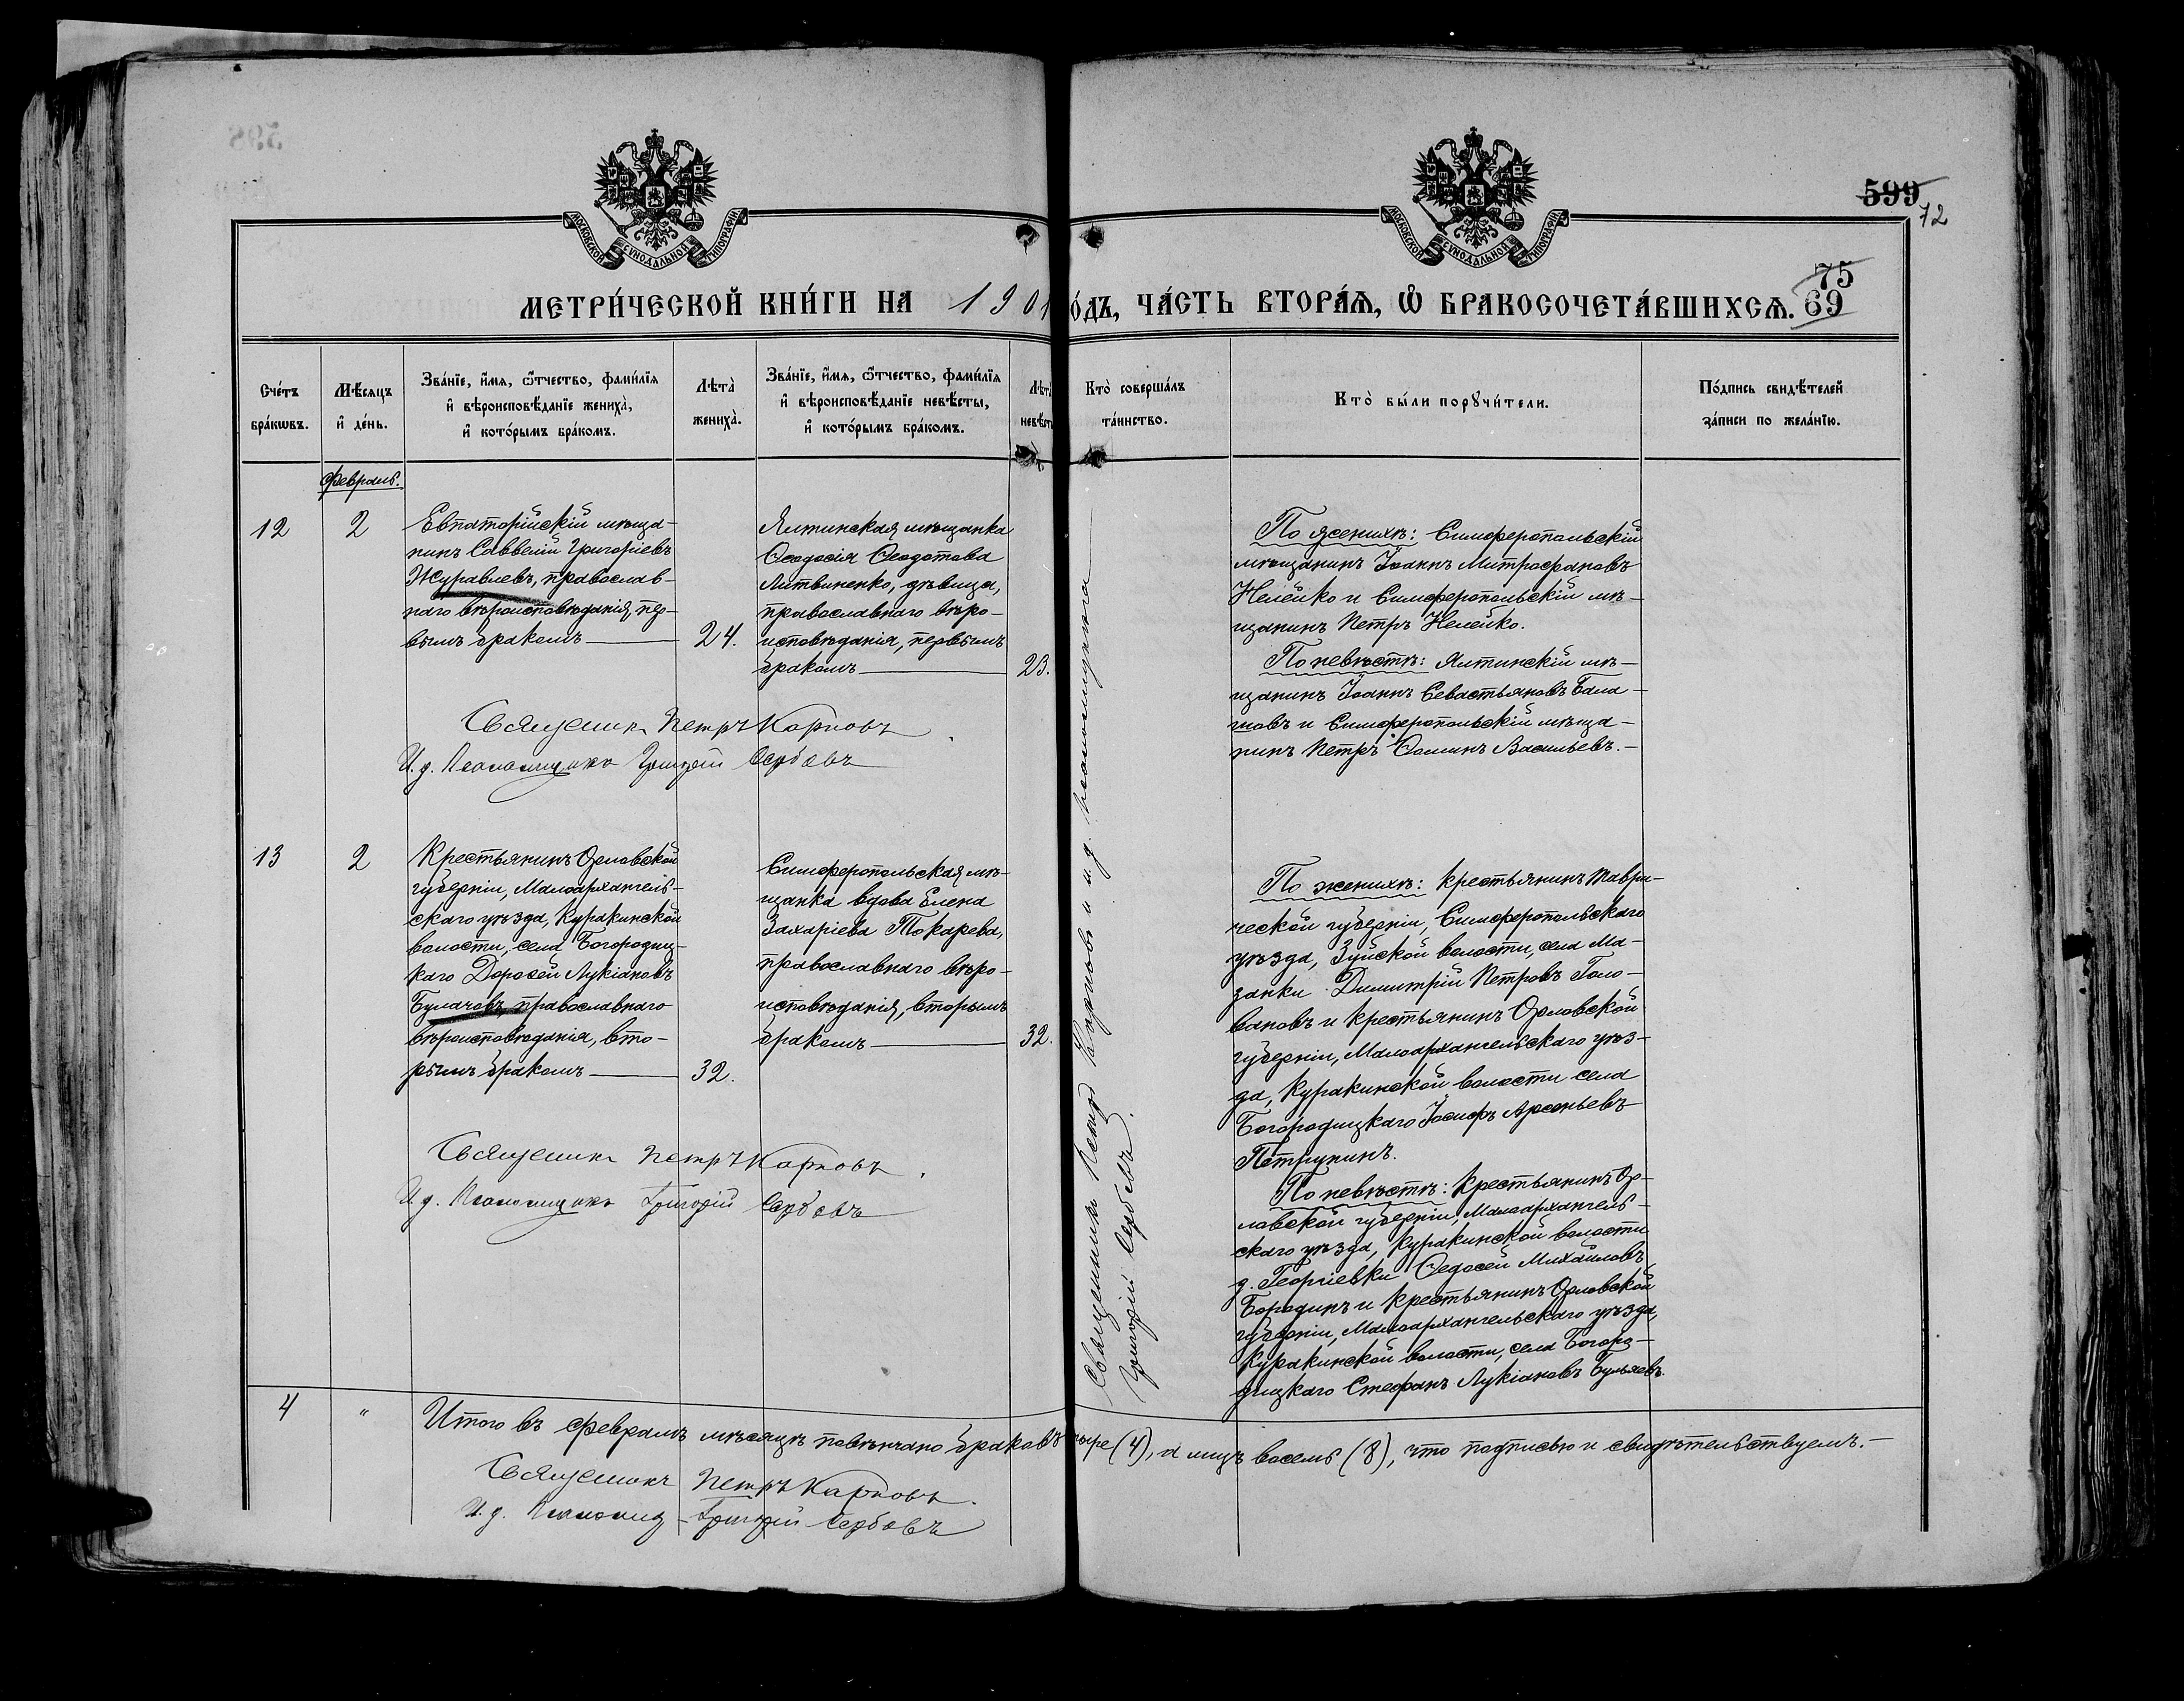 599
72
МОСКОВСКОЙ СѴНОДАЛЬНОЙ ТИПОГРАФІИ
МОСКОВСКОЙ СѴНОДАЛЬНОЙ ТИПОГРАФІИ
75
69
МЕТРИ́ЧЕСКОЙ КНИ́ГИ НА 1901
О́ДЪ, ЧА́СТЬ ВТОРА́Ѧ, Ѡ҆ БРАКОСОЧЕТА́ВШИХСѦ.
Сче́тъ бра́кѡвъ.
Мѣ́сѧцъ и҆ де́нь.
Зва́нїе, и҆́мѧ, ѻ҆́тчество, фами́лїѧ и҆ вѣроисповѣ́данїе жениха̀, и҆ кото́рымъ бра́комъ.
Лѣта̀ жениха̀.
Зва́нїе, и҆́мѧ, ѻ҆́тчество, фами́лїѧ и҆ вѣроисповѣ́данїе невѣ́сты, и҆ кото́рымъ бра́комъ.
Лѣта̀ невѣ́сты
Кто̀ соверша́лъ та́инство.
Кто̀ бы́ли порꙋчи́тели.
По́дпись свидѣ́телей за́писи по жела́нїю.
Февраль.
12
2
Евпаторійскій мѣща-
нинъ Савве­лій Григоріевъ
Журавлевъ, православ-
наго вѣроисповѣданія, пер-
вымъ бракомъ
24.
Ялтинская мѣщанка
Ѳеодосія Ѳеодотова
Литвиненко, дѣвица,
православнаго вѣро-
исповѣданія, первымъ
бракомъ
23.
Священникъ Петръ Карповъ
И. д. Псаломщика Григорій Сербовъ
По женихѣ: Симферопольскій
мѣщанинъ Іоаннъ Митрофановъ
Нелейко и Симферопольскій мѣ-
щанинъ Петръ Нелейко.
По невѣстѣ: Ялтинскій мѣ-
щанинъ Іоаннъ Севастьяновъ Бала-
новъ и Симферопольскій мѣща-
нинъ Петръ Ѳоминъ Васильевъ.
13
2
Крестьянинъ Орловской
губерніи, Малоархангель-
скаго уѣзда, Куракинской
волости, села Богородиц-
каго Дорофей Лукіановъ
Булачовъ, православнаго
вѣроисповѣданія, вто-
рымъ бракомъ
32.
Симферопольская мѣ-
щанка вдова Елена
Захаріева Токарева,
православнаго вѣро-
исповѣданія, вторымъ
бракомъ
32.
Священникъ Петръ Карповъ.
И. д. Псаломщика Григорій Сербовъ
Священникъ Петръ Карповъ и и. д. псаломщика
Григорій Сербовъ.
По женихѣ: Крестьянинъ Таври-
ческой губерніи, Симферопольскаго
уѣзда, Зуйской волости, села Ма-
занки Димитрій Петровъ Голо-
вановъ и крестьянинъ Орловской
губерніи, Малоархангельскаго уѣз-
да, Куракинской волости села
Богородицкаго Іосифъ Арсеньевъ
Петрунинъ.
По невѣстѣ: Крестьянинъ Ор-
ловской губерніи, Малоархангель-
скаго уѣзда, Куракинской волости
д. Георгіевки Ѳедосей Михайловъ
Бородинъ и крестьянинъ Орловской
губерніи, Малоархангельскаго уѣзда,
Куракинской волости, села Богоро-
дицкаго Стефанъ Лукіановъ
4
"
Итого въ февралѣ мѣсяцѣ повѣнчано браковъ
тыре (4), а лицъ восемь (8), что подписью и свидѣтельствуемъ.
Священникъ Петръ Карповъ.
И. д. Псаломщ. Григорій Сербовъ